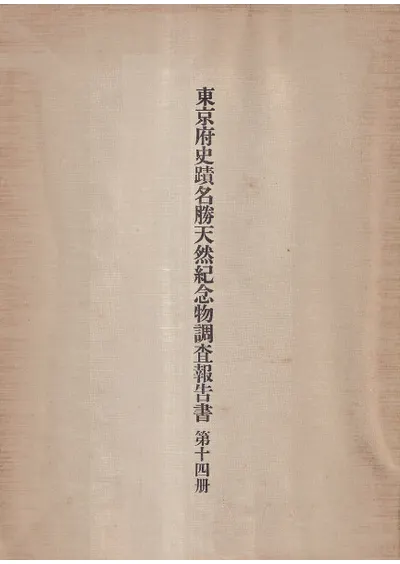 東京府史蹟名勝天然紀念物調査報告書 第十四册